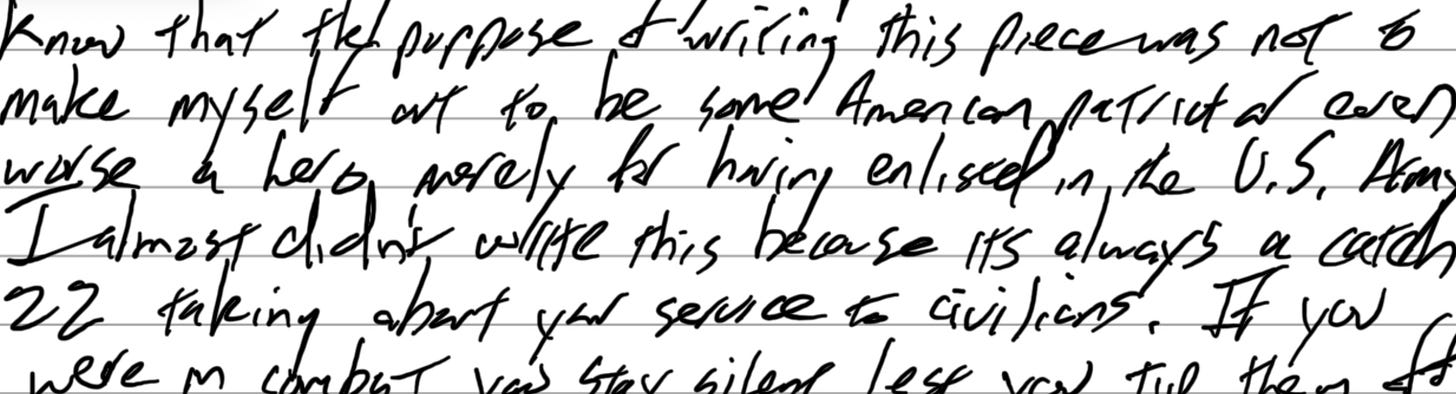 Know that the purpose of writing this piece was not to
make myself out to be some American patriot or even
worse a hero, merely for having enlisted in the U.S. Army
I almost didn't write this because its always a catch
22 talking about your service to civilians. If you
were in combat you stay silent lest you tip them off